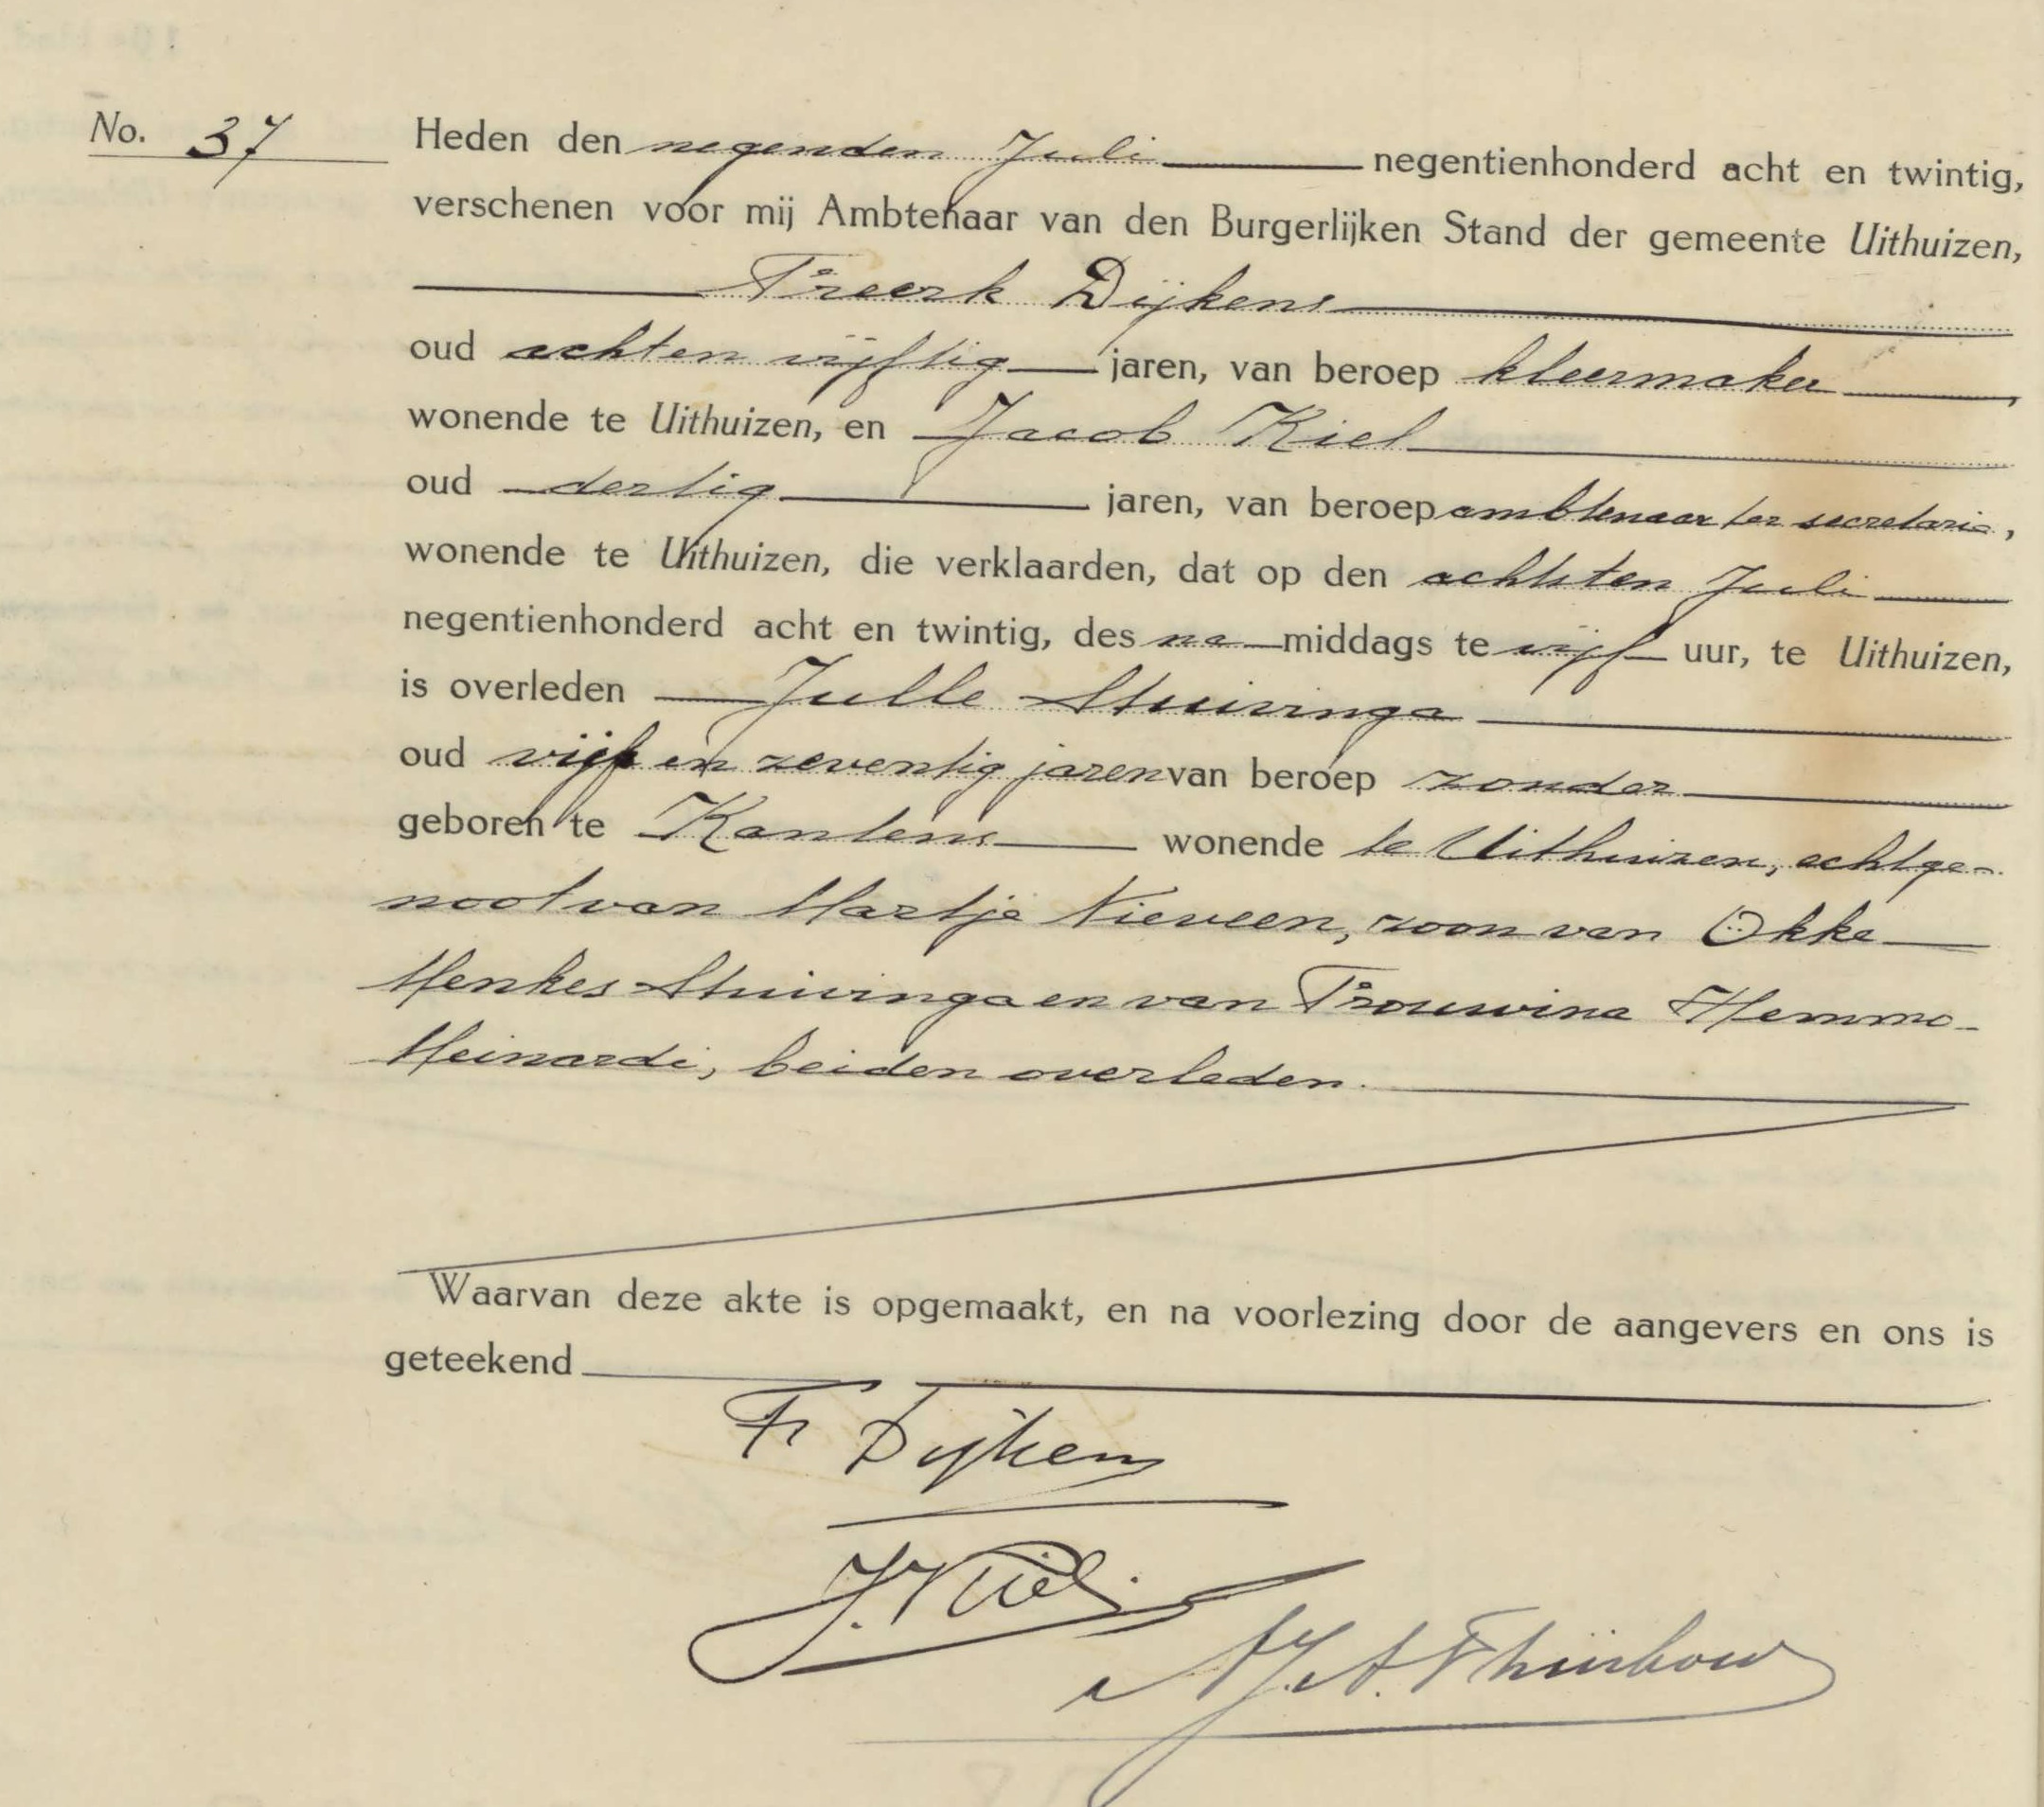 No. 37
Heden den negenden Juli negentienhonderd acht en twintig,
verschenen voor mij Ambtenaar van den Burgerlijken Stand der gemeente Uithuizen,
Freerk Dijkens
oud achten vijftig jaren, van beroep kleermaker,
wonende te Uithuizen, en Jacob Kiel
oud dertig jaren, van beroep ambtenaar ter secretarie,
wonende te Uithuizen, die verklaarden, dat op den achtsten Juli
negentienhonderd acht en twintig, des na middags te vijf uur, te Uithuizen,
is overleden Julle Stuivinga
oud vijf en zeventig jaren van beroep zonder
geboren te Kantens wonende te Uithuizen, echtge-
noot van Martje Nieveen, zoon van Okke
Menkes Stuivinga en van Frouwina Hemmo
Meinardi, beiden overleden.
Waarvan deze akte is opgemaakt, en na voorlezing door de aangevers en ons is
geteekend
Fr Dijkens
J. Kiel